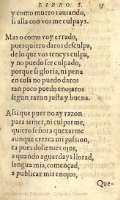 LIBRO.
y como muero callando,
si alla con vos me culpays.
Mas o como voy errado,
pues quiero daros desculpa,
de lo que vos teneys culpa,
y no puedo ser culpado,
porque si gloria, ni pena
en vos no puedo daros
tan poco puedo enojaros
segun razon justa y buena.
Assi que pues no ay razon
para temer, ni culparme,
quiero señora quexarme
aunque crezca mi passion,
en pues dolermes ojos,
a quando aguardays llorad,
lengua mia, començad,
a publicar mis enojos,
Que-